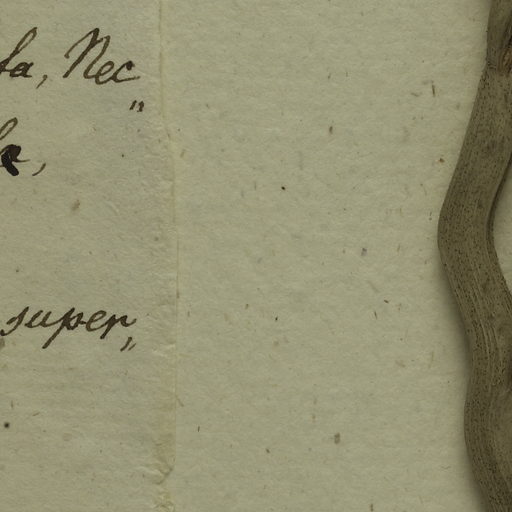 ta, Nec„
super„